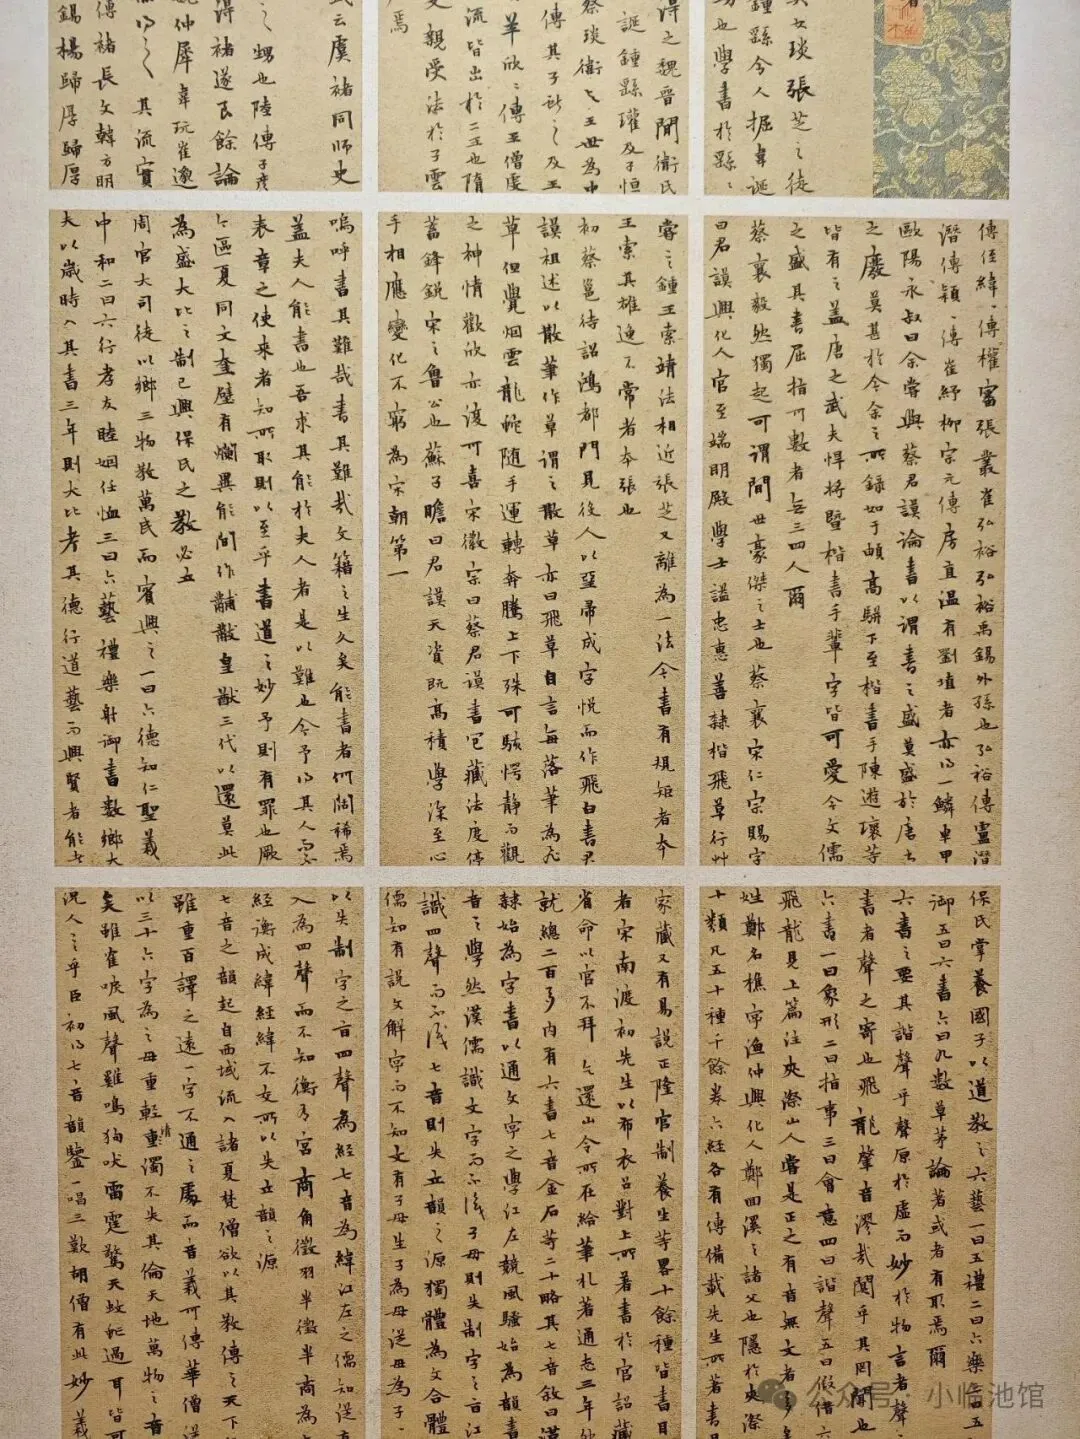 其女琰張芝之徒
鍾繇今人掘韋誕
也學書於繇、
得之魏晉間衛氏
誕鍾繇瓘及子恒
蔡琰衛、王世為中
傳其子獻之及王
羊欣、傳王僧虔
流皆出於二王也隋
又親受法於子雲
焉
云虞褚同師史
之甥也陸傳子彥
得褚遂良餘論
姚仲犀韋玩崔邈
之其流實
傳褚長文韓方明
錫楊歸厚歸厚
傳侄緯、傳權審張叢崔弘裕弘裕禹錫外孫也弘裕傳盧潛
潛傳穎、傳崔紓柳宗元傳房直溫有劉埴者亦得一鱗車甲
歐陽永叔曰余嘗與蔡君謨論書以謂書之盛莫盛於唐書
之廢莫甚於今余之所錄如于頔高駢下至楷書手陳遊瓌等
皆有之蓋唐之武夫悍將暨楷書手輩字皆可愛今文儒
之盛其書屈指可數者無三四人爾
蔡襄毅然獨起可謂間世豪傑之士也蔡襄宋仁宗賜字
曰君謨興化人官至端明殿學士謚忠惠善隸楷飛草行艸
嘗云鍾王索靖法相近張芝又離為一法今書有規矩者本
王索其雄逸不常者本張也
初蔡邕待詔鴻都門見役人以堊帚成字悅而作飛白書君
謨祖述以散筆作草謂之散草亦曰飛草自言每落筆為飛
草但覺烟雲龍蛇隨手運轉奔騰上下殊可駭愕靜而觀
之神情歡欣亦復可喜宋徽宗曰蔡君謨書包藏法度停
蓄鋒銳宋之魯公也蘇子瞻曰君謨天資既高積學深至心
手相應變化不窮為宋朝第一
嗚呼書其難哉書其難哉文籍之生久矣能書者何闊稀焉
蓋夫人能書也吾求其能於夫人者是以難也今予得其人而不
表章之使來者知所取則以至乎書道之妙予則有罪也厥
今區夏同文奎璧有爛異能間作黼黻皇猷三代以還莫此
為盛大比之制已興保民之教必立
周官大司徒以鄉三物教萬民而賓興之一曰六德知仁聖義
中和二曰六行孝友睦婣任恤三曰六藝禮樂射御書數鄉大
夫以歲時入其書三年則大比考其德行道藝而興賢者能者
保民掌養國子以道教之六藝一曰五禮二曰六樂三曰五
御五曰六書六曰九數草茅論著或者有取焉爾
六書之要其諧聲乎聲原於虛而妙於物言者聲
書者聲之寄也飛龍肇音濔哉閎乎其罔聞也
六書一曰象形二曰指事三曰會意四曰諧聲五曰假借六
飛龍見上篇注夾漈山人嘗是正之有音無文者多
姓鄭名樵字漁仲興化人鄭四溪之諸父也隱於夾漈
十類凡五十種千餘卷六經各有傳備載先生所著書目
家藏又有易說正隆官制養生等畧十餘種皆書目
者宋南渡初先生以布衣召對上所著書於官詔藏
省命以官不拜乞還山令所在給筆札著通志三年
就總二百多內有六書七音金石等二十略其七音敘曰漢
隸始為字書以通文字之學江左競風騷始為韻書
音之學然漢儒識文字而不識子母則失制字之旨江
識四聲而不識七音則失立韻之源獨體為文合體
儒知有說文解字而不知文有子母生字為母從母為子
以失制字之旨四聲為經七音為緯江左之儒知縱有
入為四聲而不知衡有宮商角徵羽半徵半商為
經衡成緯經緯不交所以失立韻之源
七音之韻起自西域流入諸夏梵僧欲以其教傳之天下
雖重百譯之遠一字不通之處而音義可傳華僧從
以三十六字為之母重輕清濁不失其倫天地萬物之音
矣雖雀唳風聲雞鳴狗吠雷霆驚天蚊虻過耳皆可
況人言乎臣初得七音韻鑒一唱三歎胡僧有此妙義
公众号:小临池馆